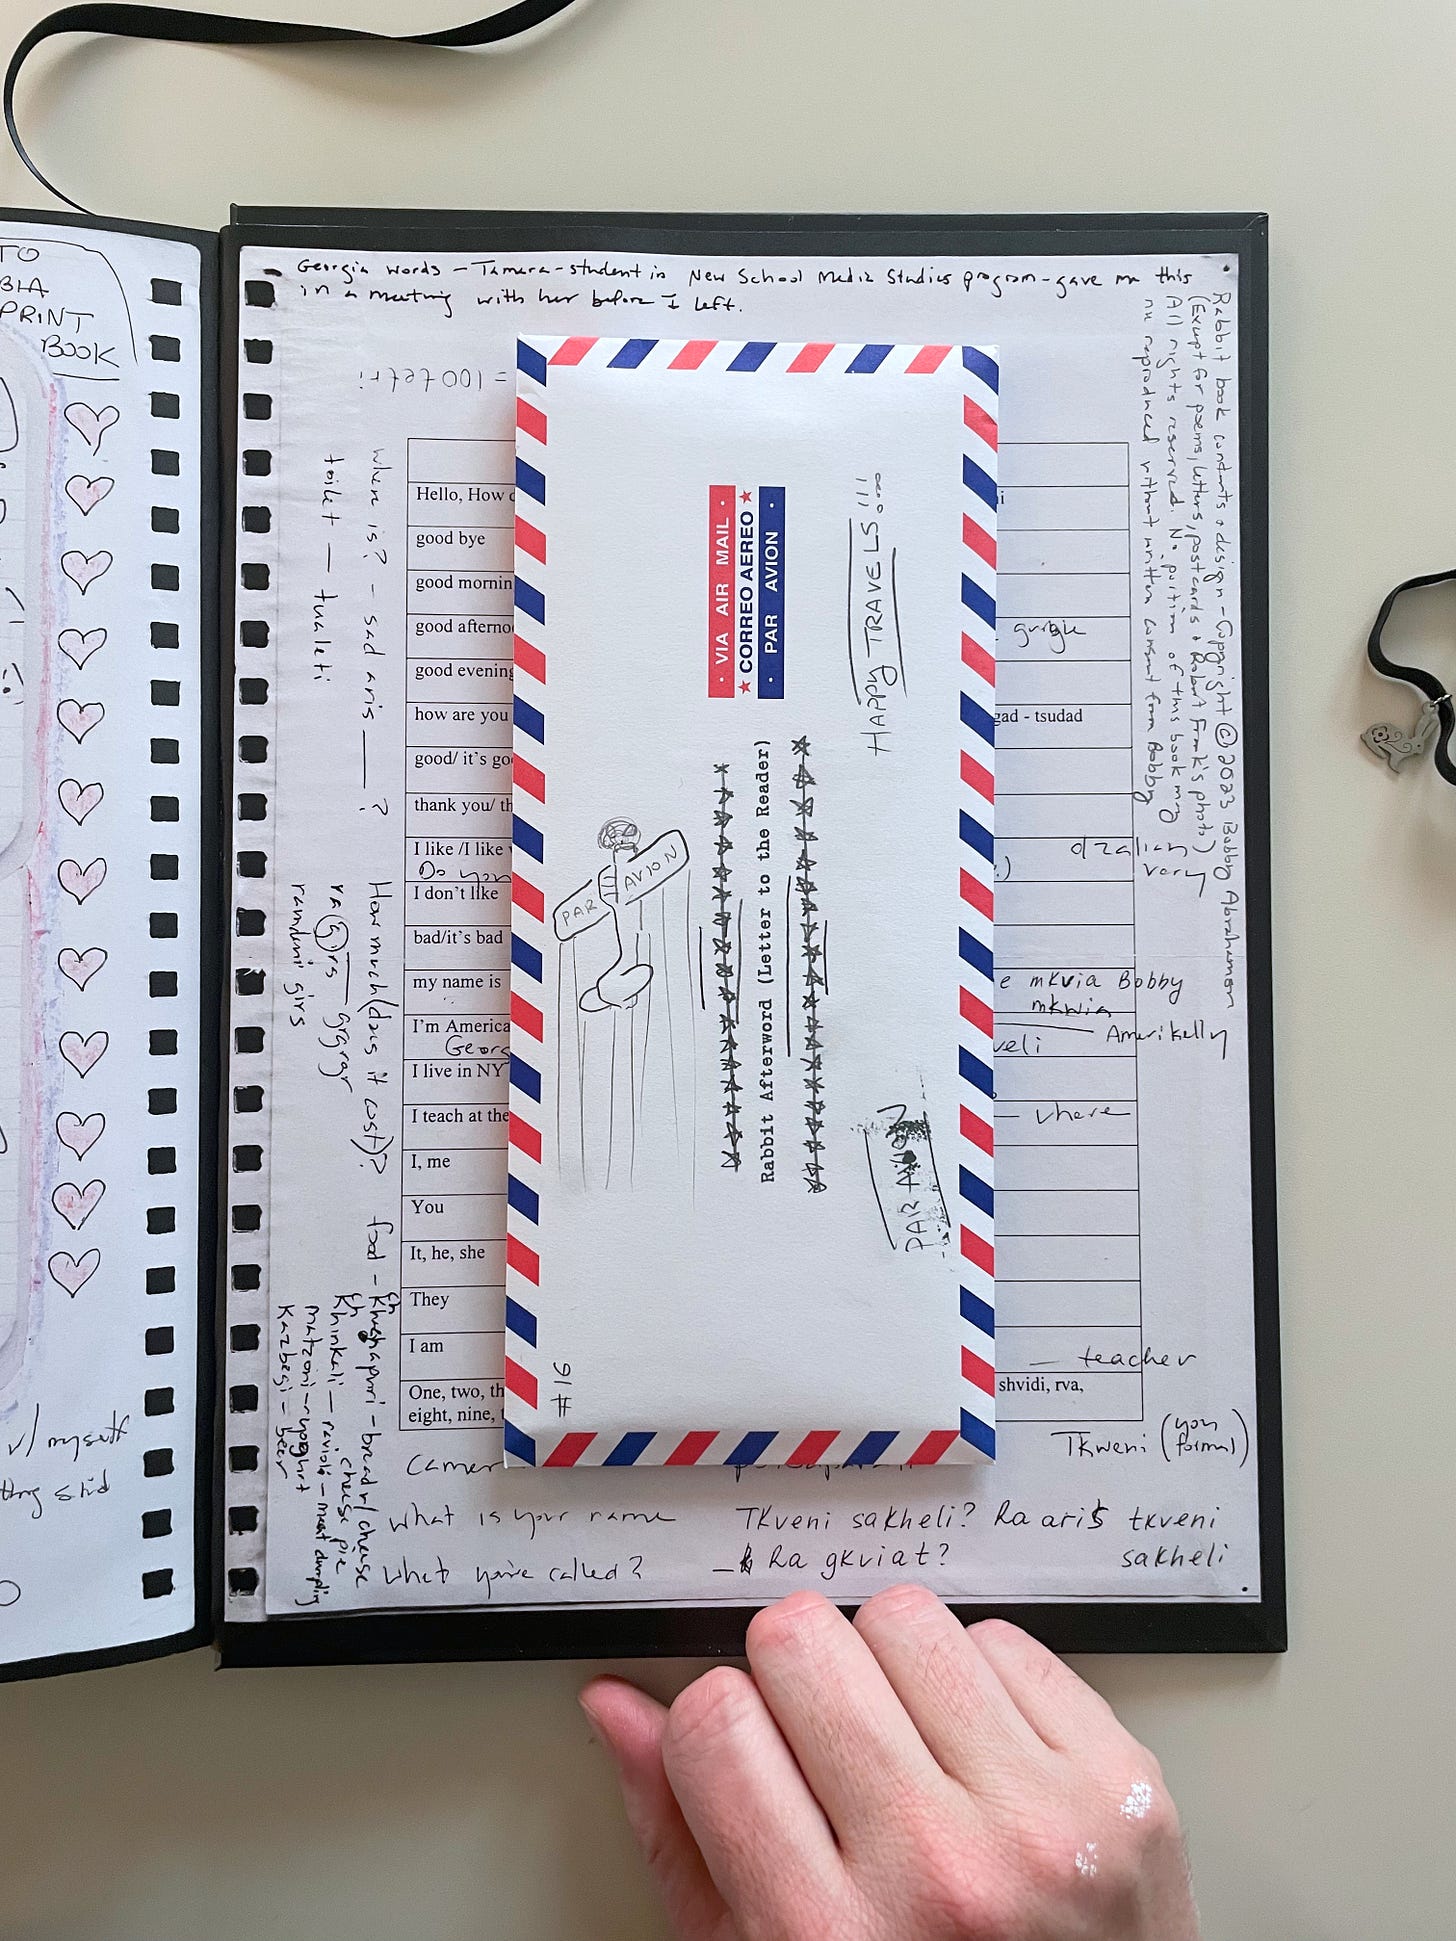 TO
PRINT
BOOK
w/ myself
Georgia words - Tamara - student in New School Media Studies program - gave me this
in a meeting with her before I left.
= 100 tetri
Where is? - sad aris ___ ?
toilet - tualeti
How much (does it cost)?
ra girs
ramdeni girs
food - Khachapuri - bread w/ cheese
cheese pie
Khinkali - ravioli - meat dumpling
matzoni - yoghurt
Kazbegi - beer
Hello, How
good bye
good mornin
good afterno
good evening
how are you
good/ it's go
thank you/ th
I like /I like
Do you
I don't like
bad/it's bad
my name is
I'm America
Georg
I live in NY
I teach at the
I, me
You
It, he, she
They
I am
One, two, th
eight, nine,
gad - tsudad
dzalian
very
e mkvia Bobby
mkwia
Amerikelly
veli
- where
- teacher
shvidi, rva,
Tkweni (you formal)
camer
What is your name
Tkveni sakheli? Ra aris tkveni
sakheli
What you're called?
- Ra gkviat?
Rabbit book contents & design - Copyright © 2023 Bobby Abrahamson
(Except for poems, letters, postcards & Robert Frank's photo)
All rights reserved. No portion of this book may
be reproduced without written consent from Bobby
HAPPY TRAVELS!!!
• VIA AIR MAIL •
★ CORREO AEREO ★
• PAR AVION •
Rabbit Afterword (Letter to the Reader)
PAR AVION
PAR AVION
#16